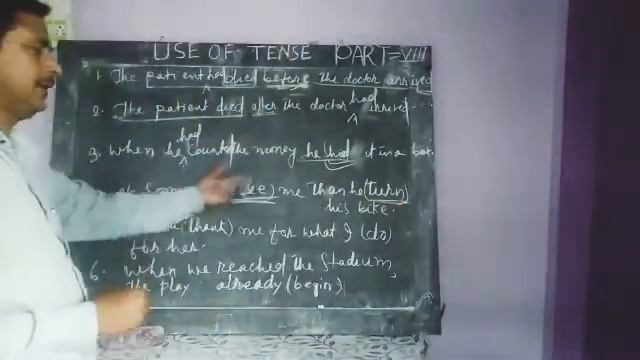 USE OF TENSE PART-VIII
1. The patient had died before the doctor arrived
2. The patient died after the doctor had arrived.
3. When he had counted the money he hid it in a box.
me than he (turn)
his bike.
thank) me for what I (do)
for her.
6. When we reached the Stadium,
the play already (begin)